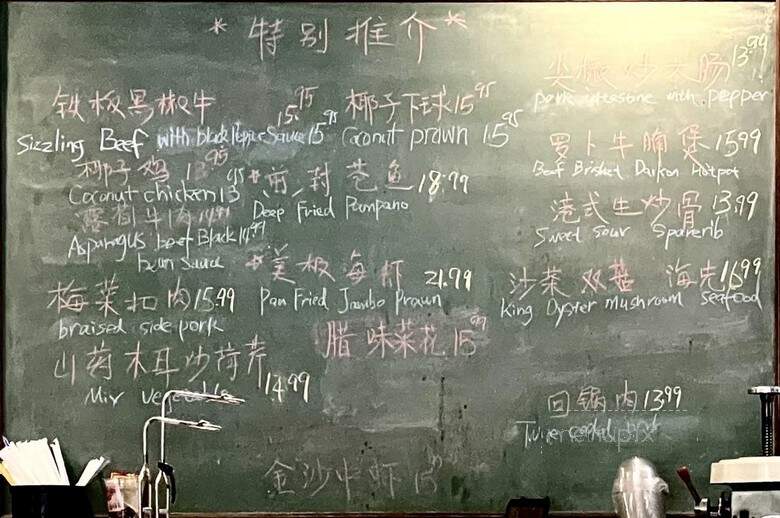 * 特别推介 *
铁板黑椒牛 15.95
Sizzling Beef with black Pepper Sauce 15.95
椰子鸡 13.95
Coconut chicken 13.95
露荀牛肉 14.99
Asparagus beef Black 14.99
bean sauce
梅菜扣肉 15.99
braised side pork
山药木耳炒荷荞 14.99
Mix vegetable
椰子下球 15.95
Coconut prawn 15.95
* 鱼 18.99
Deep Fried Pompano
* 海虾 21.99
Pan Fried Jambo Prawn
腊味菜花 15.99
金沙中虾 15.99
尖椒炒大肠 13.99
pork intestine with pepper
罗卜牛腩煲 15.99
Beef Brisket Daikon Hotpot
港式生炒骨 13.99
Sweet sour Sparerib
沙茶双菇海先 16.99
King Oyster mushroom seafood
回锅肉 13.99